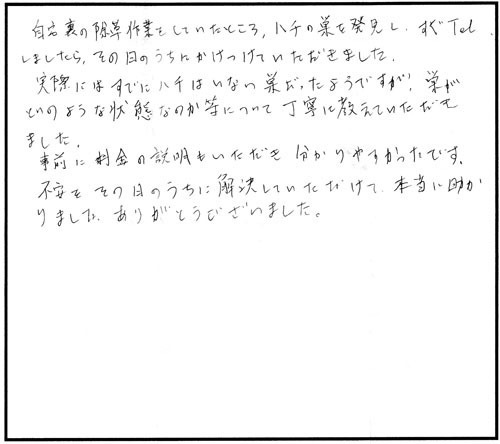 自宅裏の除草作業をしていたところ、ハチの巣を発見し、すぐTel
しましたら、その日のうちにかけつけていただきました。
実際にはすでにハチはいない巣だったようですが、巣が
どのような状態なのか等について丁寧に教えていただき
ました。
事前に料金の説明もいただき分かりやすかったです。
不安をその日のうちに解決していただけて、本当に助か
りました。ありがとうございました。